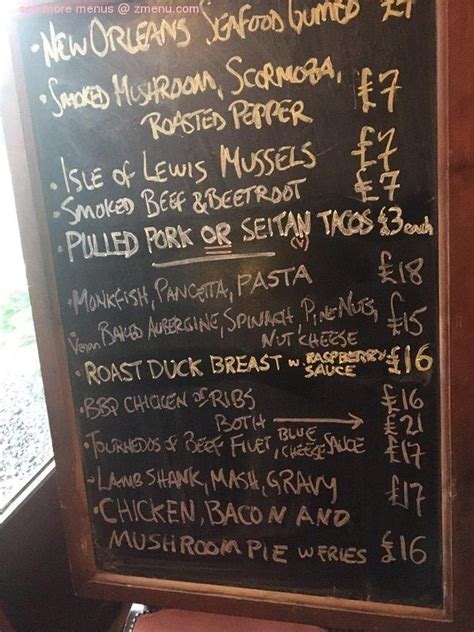 more menus @ zmenu.com
• NEW ORLEANS SEAFOOD GUMBO £7
• SMOKED MUSHROOM, SCORMOZA, £7
ROASTED PEPPER
• ISLE OF LEWIS MUSSELS £7
• SMOKED BEEF & BEETROOT £7
• PULLED PORK OR SEITAN TACOS £3 each
(V)
• MONKFISH, PANCETTA, PASTA £18
Vegan BAKED AUBERGINE, SPINACH, PINE NUTS, £15
NUT CHEESE
• ROAST DUCK BREAST w. RASPBERRY £16
SAUCE
• BBQ CHICKEN OR RIBS £16
BOTH → £21
• TOURNEDOS OF BEEF FILET, BLUE £17
CHEESE SAUCE
• LAMB SHANK, MASH, GRAVY £17
• CHICKEN, BACON AND
MUSHROOM PIE w FRIES £16